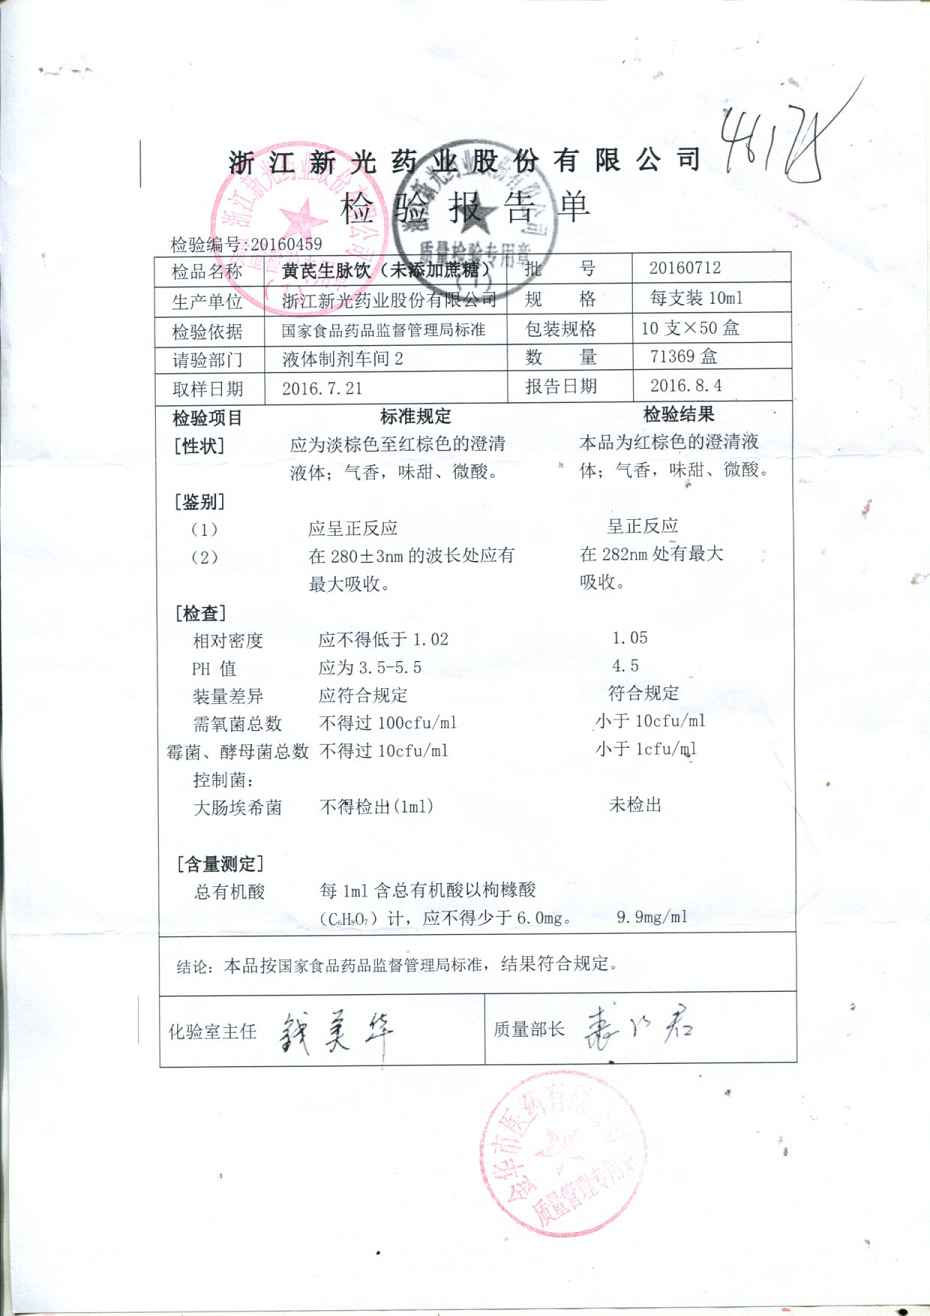 浙江新光药业股份有限公司
检验报告单
检验编号:20160459
检品名称 黄芪生脉饮（未添加蔗糖） 批 号 20160712
生产单位 浙江新光药业股份有限公司 规 格 每支装 10ml
检验依据 国家食品药品监督管理局标准 包装规格 10 支×50 盒
请验部门 液体制剂车间 2 数 量 71369 盒
取样日期 2016.7.21 报告日期 2016.8.4
检验项目 标准规定 检验结果
[性状] 应为淡棕色至红棕色的澄清 本品为红棕色的澄清液
液体；气香，味甜、微酸。 体；气香，味甜、微酸。
[鉴别]
（1） 应呈正反应 呈正反应
（2） 在 280±3nm 的波长处应有 在 282nm 处有最大
最大吸收。 吸收。
[检查]
相对密度 应不得低于 1.02 1.05
PH 值 应为 3.5-5.5 4.5
装量差异 应符合规定 符合规定
需氧菌总数 不得过 100cfu/ml 小于 10cfu/ml
霉菌、酵母菌总数 不得过 10cfu/ml 小于 1cfu/ml
控制菌：
大肠埃希菌 不得检出(1ml) 未检出
[含量测定]
总有机酸 每 1ml 含总有机酸以枸橼酸
（C₆H₈O₇）计，应不得少于 6.0mg。 9.9mg/ml
结论：本品按国家食品药品监督管理局标准，结果符合规定。
化验室主任 钱美华 质量部长
浙江新光药业股份有限公司
质量检验专用章
(1)
金华市医药有限公司
质量管理专用章